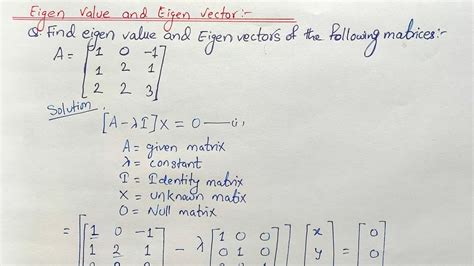 Eigen value and Eigen vector:-
Q Find eigen value and Eigen vectors of the following matrices:-
A = [1 0 -1
1 2 1
2 2 3]
Solution
[A-λI]X = 0 — (i)
A = given matrix
λ = constant
I = Identity matrix
X = unknown matrix
0 = Null matrix
= [1 0 -1] - λ [1 0 0] [x] = [0]
1 2 1 0 1 0 y 0